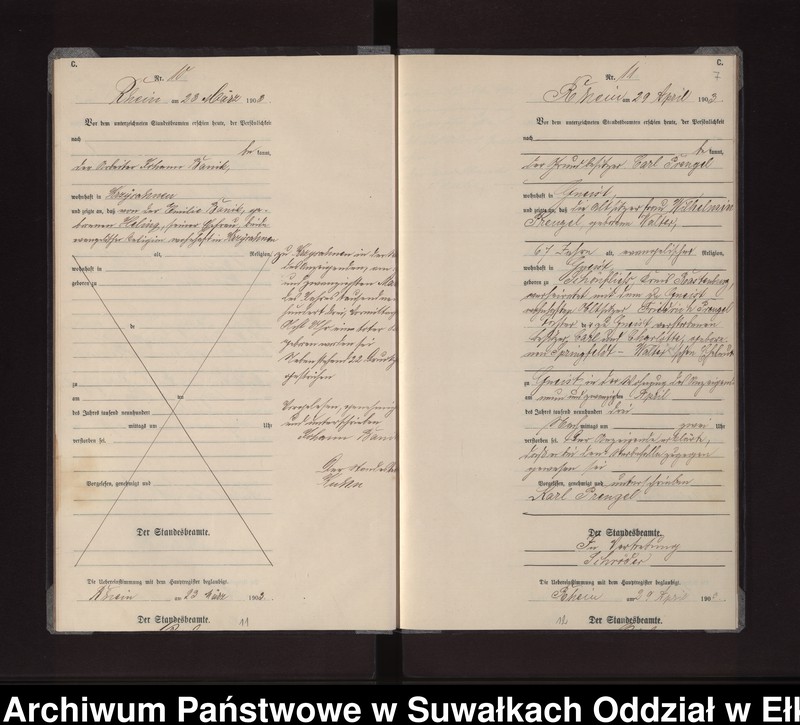 C.
Nr. 10
Rhein am 23 März 1903.
Vor dem unterzeichneten Standesbeamten erschien heute, der Persönlichkeit
nach
be kannt,
der Arbeiter Johann
wohnhaft in
und zeigte an, daß von der Emilie ge-
borenen seiner Ehefrau, beide
evangelischer Religion wohnhaft in
alt, Religion,
wohnhaft in
geboren zu
in
zu
am um
des Jahres tausend neunhundert
mittags um Uhr
verstorben sei.
Vorgelesen, genehmigt und
Der Standesbeamte.
Die Uebereinstimmung mit dem Hauptregister beglaubigt.
Rhein am 23 März 1903.
Der Standesbeamte.
11
zu in der
des Anzeigenden, am
und zwanzigsten
des Jahres tausend neun
hundert drei, Vormittags
Uhr ein todter
geboren worden sei
Nebenstehend 22
gestrichen
Vorgelesen, genehmigt
und unterschrieben
Johann
Der Standes
C.
7
Nr. 11
Rhein am 29 April 1903.
Vor dem unterzeichneten Standesbeamten erschien heute, der Persönlichkeit
nach
be kannt,
der Grundbesitzer Carl Prengel
wohnhaft in Gneist
und zeigte an, daß die Altsitzerfrau Wilhelmine
Prengel, geborene Walter,
67 Jahre alt, evangelischer Religion,
wohnhaft in Gneist
geboren zu Kreis
verheiratet mit dem zu Gneist
Altsitzer Friedrich Prengel
Tochter der zu Gneist verstorbenen
Besitzer Carl und Charlotte, gebore-
nen Springfeldt - Walter'schen Eheleute
zu Gneist in der Wohnung des Anzeigenden
am neun und zwanzigsten April
des Jahres tausend neunhundert drei
Nach mittags um zwei Uhr
verstorben sei. Der Anzeigende erklärte,
daß er bei dem Sterbefalle zugegen
gewesen sei
Vorgelesen, genehmigt und unterschrieben
Karl Prengel
Der Standesbeamte.
In Vertretung
Schröder
Die Uebereinstimmung mit dem Hauptregister beglaubigt.
Rhein am 29 April 190
12
Der Standesbeamte.
Archiwum Państwowe w Suwałkach Oddział w Eł